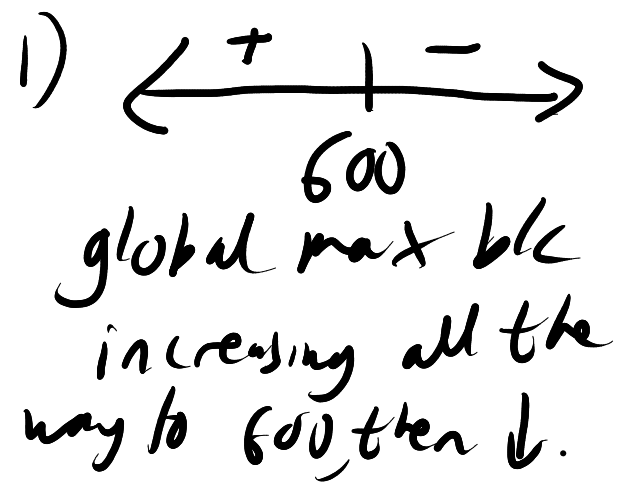 1) + -
600
global max b/c
increasing all the
way to 600, then ↓.